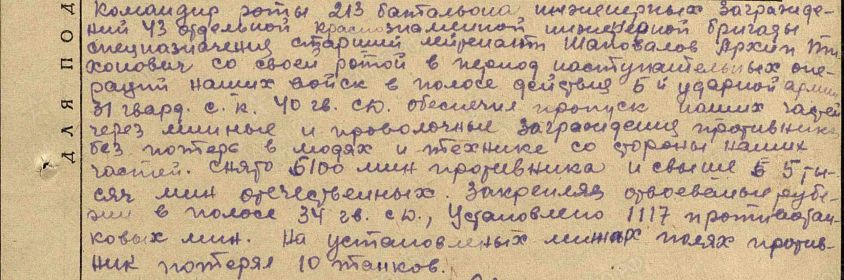 Командир роты 213 батальона инженерных загражде-
ний 43 отдельной Краснознаменной инженерной бригады
спецназначения старший лейтенант Шаповалов Архип Ти-
хонович со своей ротой в период наступательных опе-
раций наших войск в полосе действия 5й ударной армии
31 гвард. с.к. 40 гв. с.д. обеспечил пропуск наших частей
через минные и проволочные заграждения противника
без потерь в людях и технике со стороны наших
частей. Снято 5100 мин противника и свыше 5 ты-
сяч мин отечественных. Закрепляя отвоеваные рубе-
жи в полосе 34 гв. с.д., установлено 1117 противотан-
ковых мин. На установленых минных полях против-
ник потерял 10 танков.
ДЛЯ ПОД